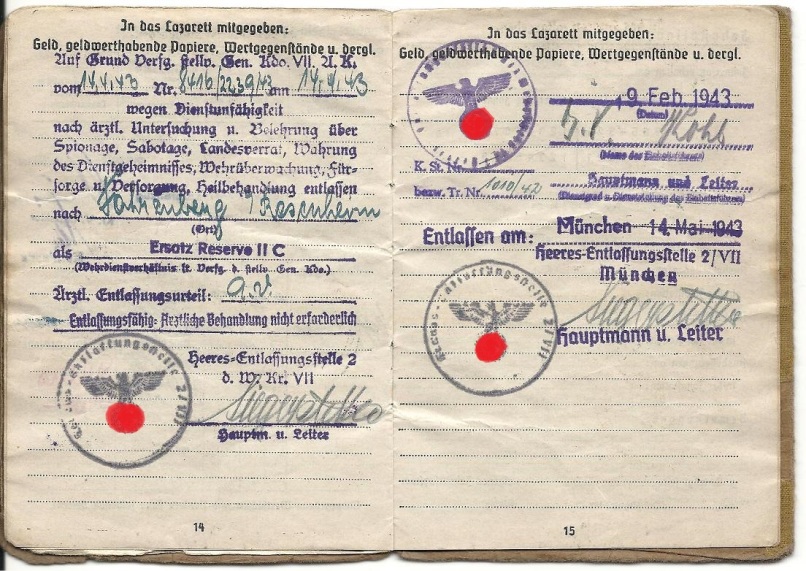 In das Lazarett mitgegeben:
Geld, geldwerthabende Papiere, Wertgegenstände u. dergl.
Auf Grund Verfg. stellv. Gen. Kdo. VII. A. K.
vom 14.4.43 Nr. 8416/2239/43 am 14.4.43
wegen Dienstunfähigkeit
nach ärztl. Untersuchung u. Belehrung über
Spionage, Sabotage, Landesverrat, Wahrung
des Dienstgeheimnisses, Wehrüberwachung, Für-
sorge u. Versorgung, Heilbehandlung entlassen
nach Rosenheim
(Ort)
als Ersatz Reserve II C
(Wehrdienstverhältnis lt. Verfg. d. stellv. Gen. Kdo.)
Ärztl. Entlassungsurteil: a.v.
Entlassungsfähig: Ärztliche Behandlung nicht erforderlich
Heeres-Entlassungsstelle 2
d. W. Kr. VII
Hauptm. u. Leiter
Heeres-Entlassungsstelle 2/VII
14
In das Lazarett mitgegeben:
Geld, geldwerthabende Papiere, Wertgegenstände u. dergl.
9. Feb. 1943
(Datum)
Kohl
(Name des Einheitsführers)
K. St. Nr.
bezw. Tr. Nr. 1010/42
Hauptmann und Leiter
(Dienstgrad u. Dienststellung des Einheitsführers)
Entlassen am: München 14. Mai 1943
Heeres-Entlassungsstelle 2/VII
München
Hauptmann u. Leiter
Heeres-Entlassungsstelle 2/VII
15